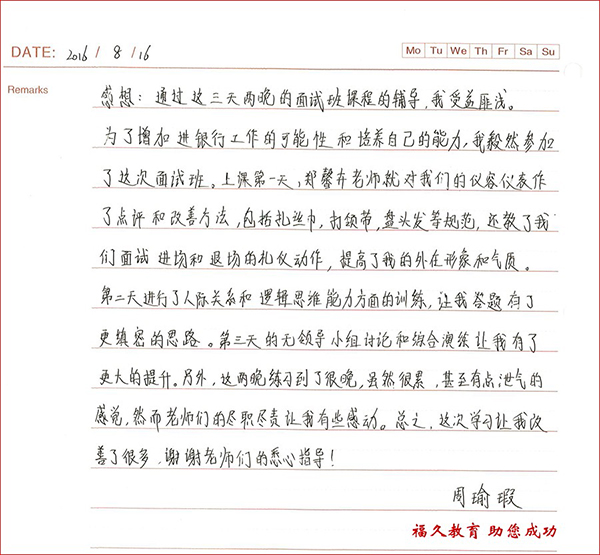 DATE: 2016 / 8 / 16
Mo Tu We Th Fr Sa Su
Remarks
感想：通过这三天两晚的面试班课程的辅导，我受益匪浅。
为了增加进银行工作的可能性和培养自己的能力，我毅然参加
了这次面试班。上课第一天，郑馨卉老师就对我们的仪容仪表作
了点评和改善方法，包括扎丝巾，打领带，盘头发等规范，还教了我
们面试进场和退场的礼仪动作，提高了我的外在形象和气质。
第二天进行了人际关系和逻辑思维能力方面的训练，让我答题有了
更缜密的思路。第三天的无领导小组讨论和综合演练让我有了
更大的提升。另外，这两晚练习到了很晚，虽然很累，甚至有点泄气的
感觉，然而老师们的尽职尽责让我有些感动。总之，这次学习让我改
善了很多，谢谢老师们的悉心指导！
周瑜瑕
福久教育 助您成功